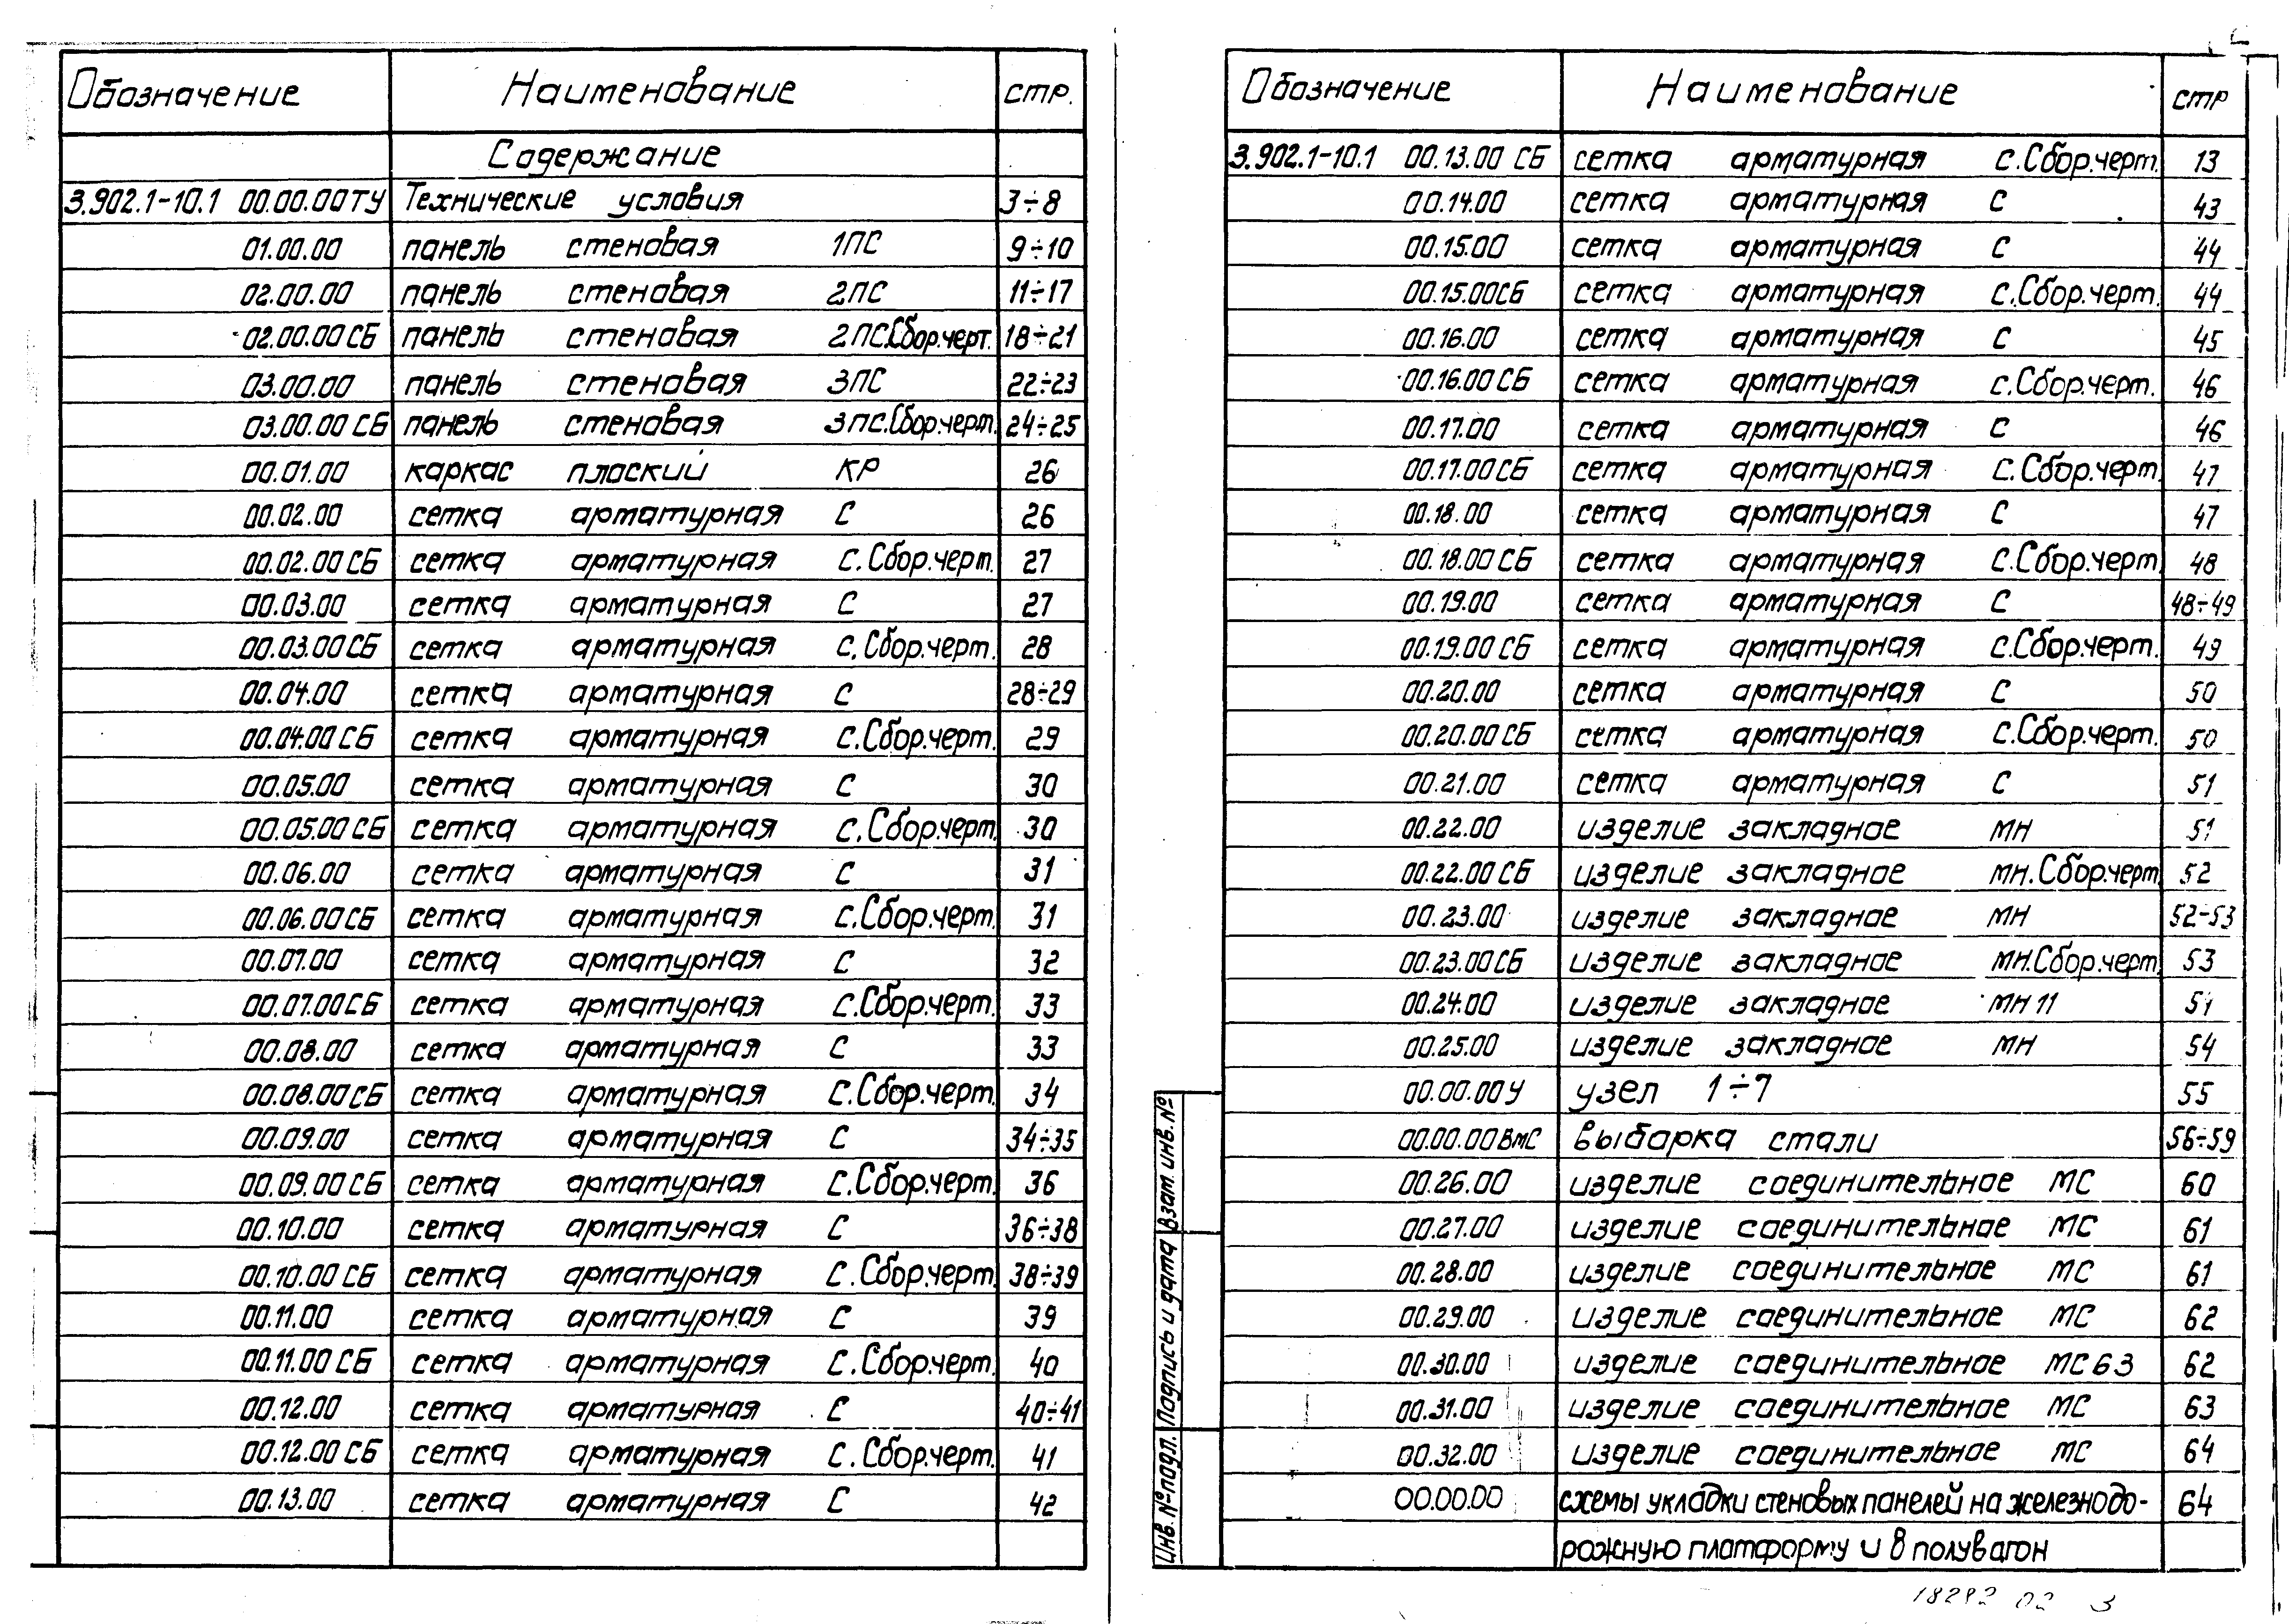 Обозначение Наименование стр.
Содержание
3.902.1-10.1 00.00.00ТУ Технические условия 3÷8
01.00.00 панель стеновая 1ПС 9÷10
02.00.00 панель стеновая 2ПС 11÷17
02.00.00 СБ панель стеновая 2ПС.Сбор.черт. 18÷21
03.00.00 панель стеновая 3ПС 22÷23
03.00.00 СБ панель стеновая 3ПС.Сбор.черт. 24÷25
00.01.00 каркас плоский КР 26
00.02.00 сетка арматурная С 26
00.02.00 СБ сетка арматурная С.Сбор.черт. 27
00.03.00 сетка арматурная С 27
00.03.00 СБ сетка арматурная С.Сбор.черт. 28
00.04.00 сетка арматурная С 28÷29
00.04.00 СБ сетка арматурная С.Сбор.черт. 29
00.05.00 сетка арматурная С 30
00.05.00 СБ сетка арматурная С.Сбор.черт. 30
00.06.00 сетка арматурная С 31
00.06.00 СБ сетка арматурная С.Сбор.черт. 31
00.07.00 сетка арматурная С 32
00.07.00 СБ сетка арматурная С.Сбор.черт. 33
00.08.00 сетка арматурная С 33
00.08.00 СБ сетка арматурная С.Сбор.черт. 34
00.09.00 сетка арматурная С 34÷35
00.09.00 СБ сетка арматурная С.Сбор.черт. 36
00.10.00 сетка арматурная С 36÷38
00.10.00 СБ сетка арматурная С.Сбор.черт. 38÷39
00.11.00 сетка арматурная С 39
00.11.00 СБ сетка арматурная С.Сбор.черт. 40
00.12.00 сетка арматурная С 40÷41
00.12.00 СБ сетка арматурная С.Сбор.черт. 41
00.13.00 сетка арматурная С 42
Обозначение Наименование стр
3.902.1-10.1 00.13.00 СБ сетка арматурная С.Сбор.черт. 13
00.14.00 сетка арматурная С 43
00.15.00 сетка арматурная С 44
00.15.00СБ сетка арматурная С.Сбор.черт. 44
00.16.00 сетка арматурная С 45
00.16.00 СБ сетка арматурная С.Сбор.черт. 46
00.17.00 сетка арматурная С 46
00.17.00 СБ сетка арматурная С.Сбор.черт. 47
00.18.00 сетка арматурная С 47
00.18.00 СБ сетка арматурная С.Сбор.черт. 48
00.19.00 сетка арматурная С 48÷49
00.19.00 СБ сетка арматурная С.Сбор.черт. 49
00.20.00 сетка арматурная С 50
00.20.00 СБ сетка арматурная С.Сбор.черт. 50
00.21.00 сетка арматурная С 51
00.22.00 изделие закладное МН 51
00.22.00 СБ изделие закладное МН.Сбор.черт. 52
00.23.00 изделие закладное МН 52-53
00.23.00 СБ изделие закладное МН.Сбор.черт. 53
00.24.00 изделие закладное МН 11
00.25.00 изделие закладное МН 54
00.00.00У узел 1÷7 55
00.00.00 ВМС выборка стали 56÷59
00.26.00 изделие соединительное МС 60
00.27.00 изделие соединительное МС 61
00.28.00 изделие соединительное МС 61
00.29.00 изделие соединительное МС 62
00.30.00 изделие соединительное МС 63 62
00.31.00 изделие соединительное МС 63
00.32.00 изделие соединительное МС 64
00.00.00 схемы укладки стеновых панелей на железнодо- 64
рожную платформу и в полувагон
Инв. № подл. Подпись и дата Взам. инв. №
18292 02 3